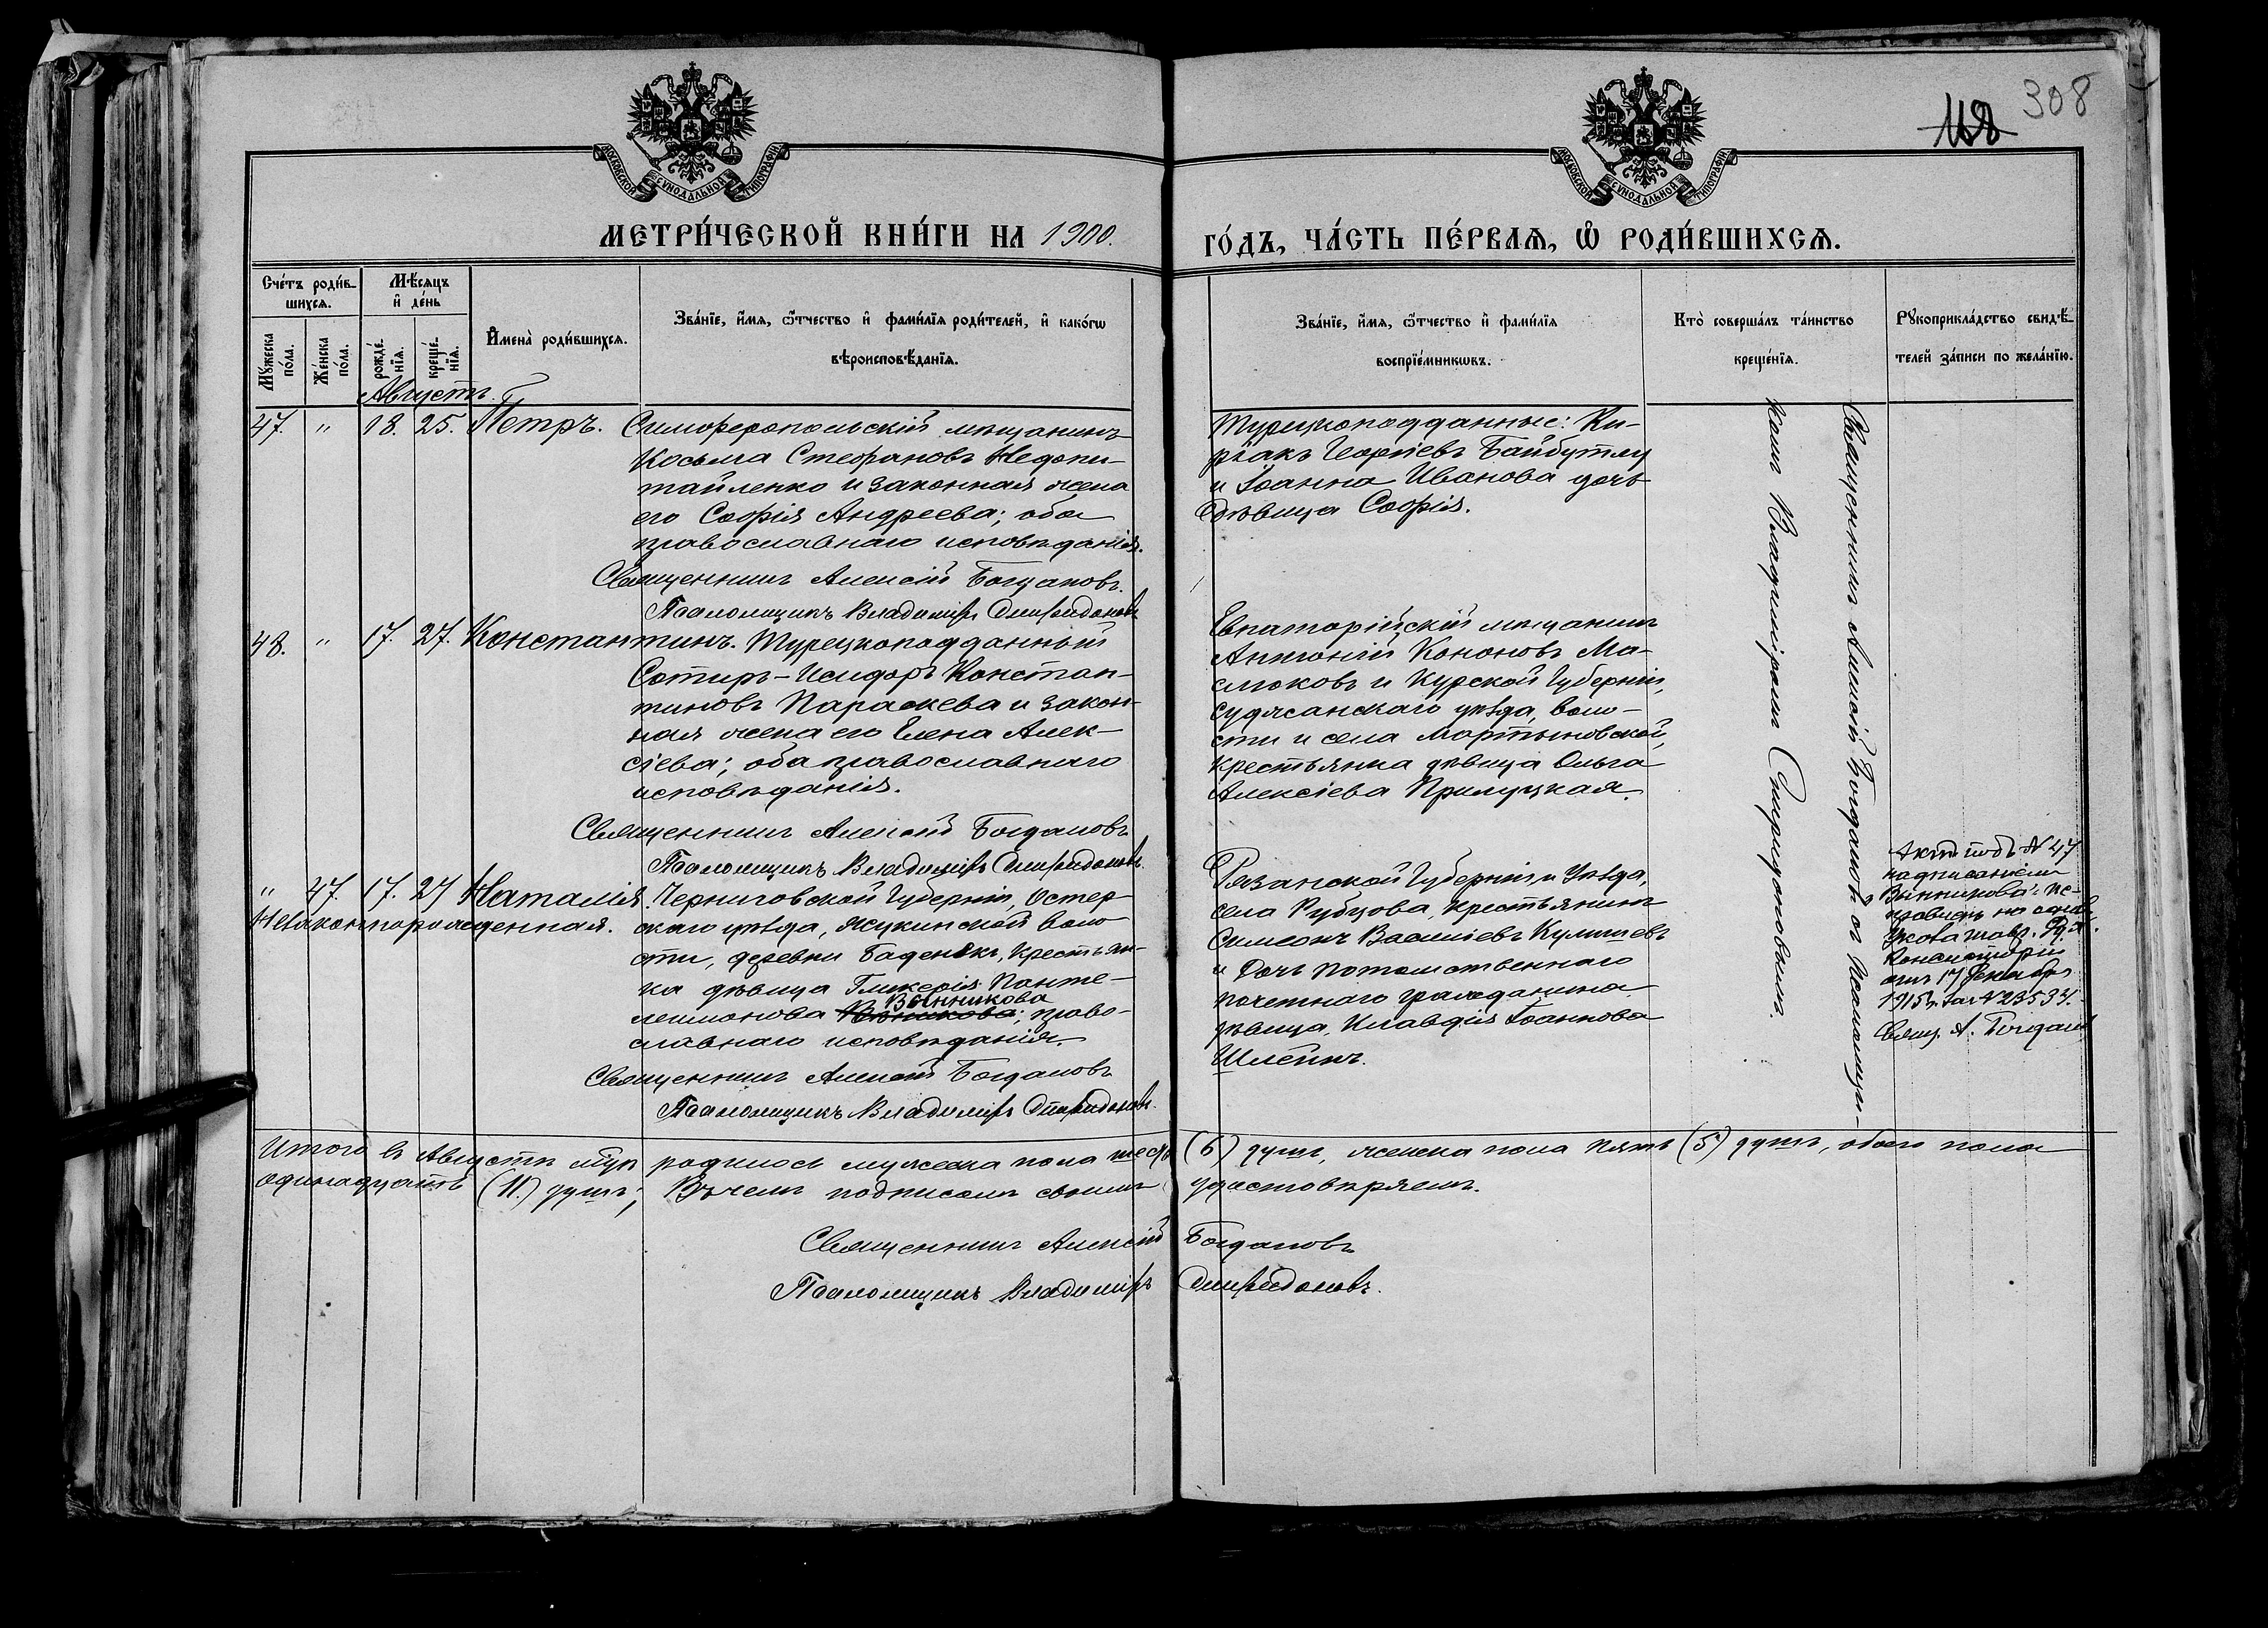 308
118
МОСКОВСКОЙ СѴНОДАЛЬНОЙ ТИПОГРАФІИ
МОСКОВСКОЙ СѴНОДАЛЬНОЙ ТИПОГРАФІИ
МЕТРИ́ЧЕСКОЙ КНИ́ГИ НА 1900.
ГО́ДЪ, ЧА́СТЬ ПЕ́РВАѦ, Ѡ҆ РОДИ́ВШИХСѦ.
Сче́тъ роди́в-
шихсѧ.
Мѣ́сѧцъ
и҆ де́нь
Мꙋ́жеска
по́ла.
Же́нска
по́ла.
рожде́-
нїѧ.
креще́-
нїѧ.
И҆мена̀ роди́вшихсѧ.
Зва́нїе, и҆́мѧ, ѻ҆́тчество и҆ фами́лїѧ роди́телей, и҆ како́гѡ
вѣроисповѣ́данїѧ.
Зва́нїе, и҆́мѧ, ѻ҆́тчество и҆ фами́лїѧ
воспрїе́мникѡвъ.
Кто̀ соверша́лъ та́инство
креще́нїѧ.
Рꙋкоприкла́дство свидѣ́-
телей за́писи по жела́нїю.
Августъ.
47. " 18. 25. Петръ. Симферопольскій мѣщанинъ
Косьма Стефановъ Недопи-
тайленко и законная жена
его Софія Андреева; оба
православнаго исповѣданія.
Священникъ Алексій Богдановъ.
Псаломщикъ Владиміръ Спиридоновъ
Турецкоподданные: Ки-
ріакъ Георгіевъ Байбутлу
и Іоанна Иванова дочь
дѣвица Софія.
48. " 17. 27. Константинъ. Турецкоподданный
Сотиръ-Исидоръ Констан-
тиновъ Параскева и закон-
ная жена его Елена Алек-
сіева; оба православнаго
исповѣданія.
Священникъ Алексій Богдановъ
Псаломщикъ Владиміръ Спиридоновъ.
Евпаторійскій мѣщанинъ
Антоній Кононовъ Ма-
слюковъ и Курской губерніи,
Суджанскаго уѣзда, воло-
сти и села Мартыновской,
крестьянка дѣвица Ольга
Алексіева Прилуцкая.
" 47. 17. 27 Наталія
Незаконнорожденная.
Черниговской губерніи, Остер-
скаго уѣзда, Жукинской воло
сти, деревни Боденькъ, крестьян-
ка дѣвица Гликерія Панте-
Вынникова
леимонова; право-
славнаго исповѣданія.
Священникъ Алексій Богдановъ
Псаломщикъ Владиміръ Спиридоновъ.
Рязанской губерніи и уѣзда,
села Рубцова, крестьянинъ
Симеонъ Василіевъ Кулишевъ
и дочь потомственнаго
почетнаго гражданина
дѣвица, Клавдія Іоаннова
Шлейнъ.
Священникъ Алексій Богдановъ съ псаломщи-
комъ Владиміромъ Спиридоновымъ.
Актъ подъ № 47
надписаніемъ
"Вынникова" ис-
правленъ на основ.
Указа Тавр. Д.
Консисторіи
отъ 17 Декабря
1915 г. за № 23534.
Свящ. А. Богдановъ
Итого въ Августѣ мѣс родилось мужеска пола шесть (6) душъ, женска пола пять (5) душъ, обоего пола
одинадцать (11.) душъ; Въ чемъ подписомъ своимъ удостовѣряемъ.
Священникъ Алексій Богдановъ
Псаломщикъ Владиміръ Спиридоновъ.